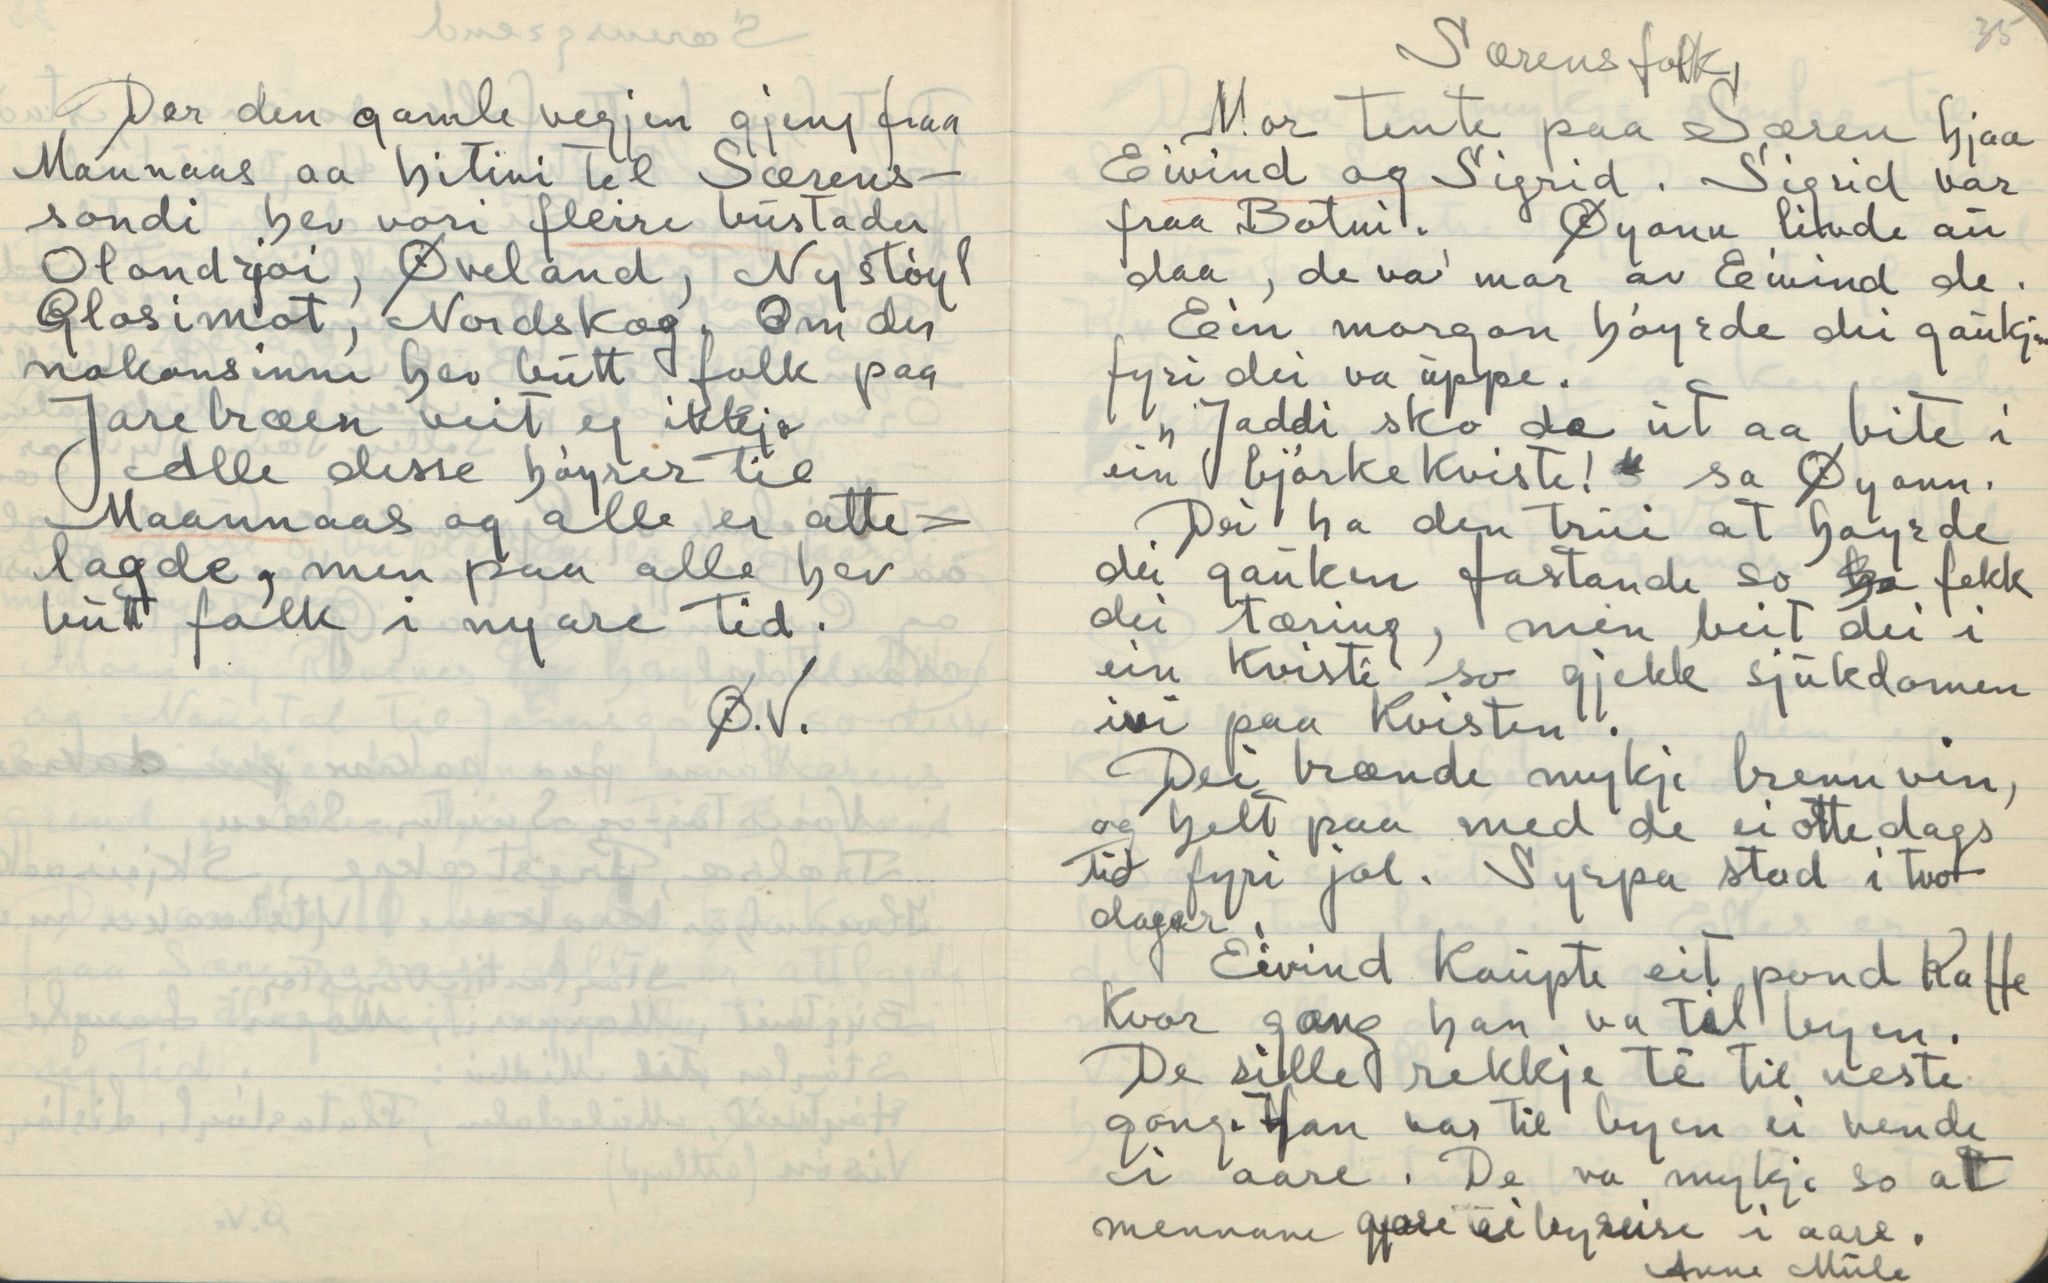 Der den gamle vegjen gjeng fraa
Mannaas aa hitini til Særens-
sondi hev vori fleire bustader
Olandrjoi, Øveland, Nystöyl
Glosimot, Nordskog. Om der
nokonsinne hev butt folk paa
Jarebræen veit eg ikkje
Alle desse höyrer til
Maannaas og alle er atte=
lagde, men paa alle hev
butt folk i nyare tid.
Ø.V.
35
Særensfolk,
Mor tente paa Særen hjaa
Eivind og Sigrid. Sigrid var
fraa Botni. Øyonn livde au
daa, de va' mor av Eivind de.
Ein morgon höyrde dei gaukjen
fyri dei va uppe.
"Jaddi sko de ut aa bite i
ein bjørkekviste!" sa Øyonn.
Dei ha den trui at hoyrde
dei gauken fastande so fekk
dei tæring, men beit dei i
ein kviste so gjekk sjukdomen
ivi paa kvisten.
Dei brænde mykje brennvin,
og helt paa med de ei ottedags
tid fyri jol. Syrpa stod i tvo
dagar.
Eivind kaupte eit pond kaffe
kvor gong han va til byen.
De sille rekkje te til neste
gong. Han var til byen ei vende
i aare. De va mykje so at
mennane gjore ei byreise i aare.
Anne Mule